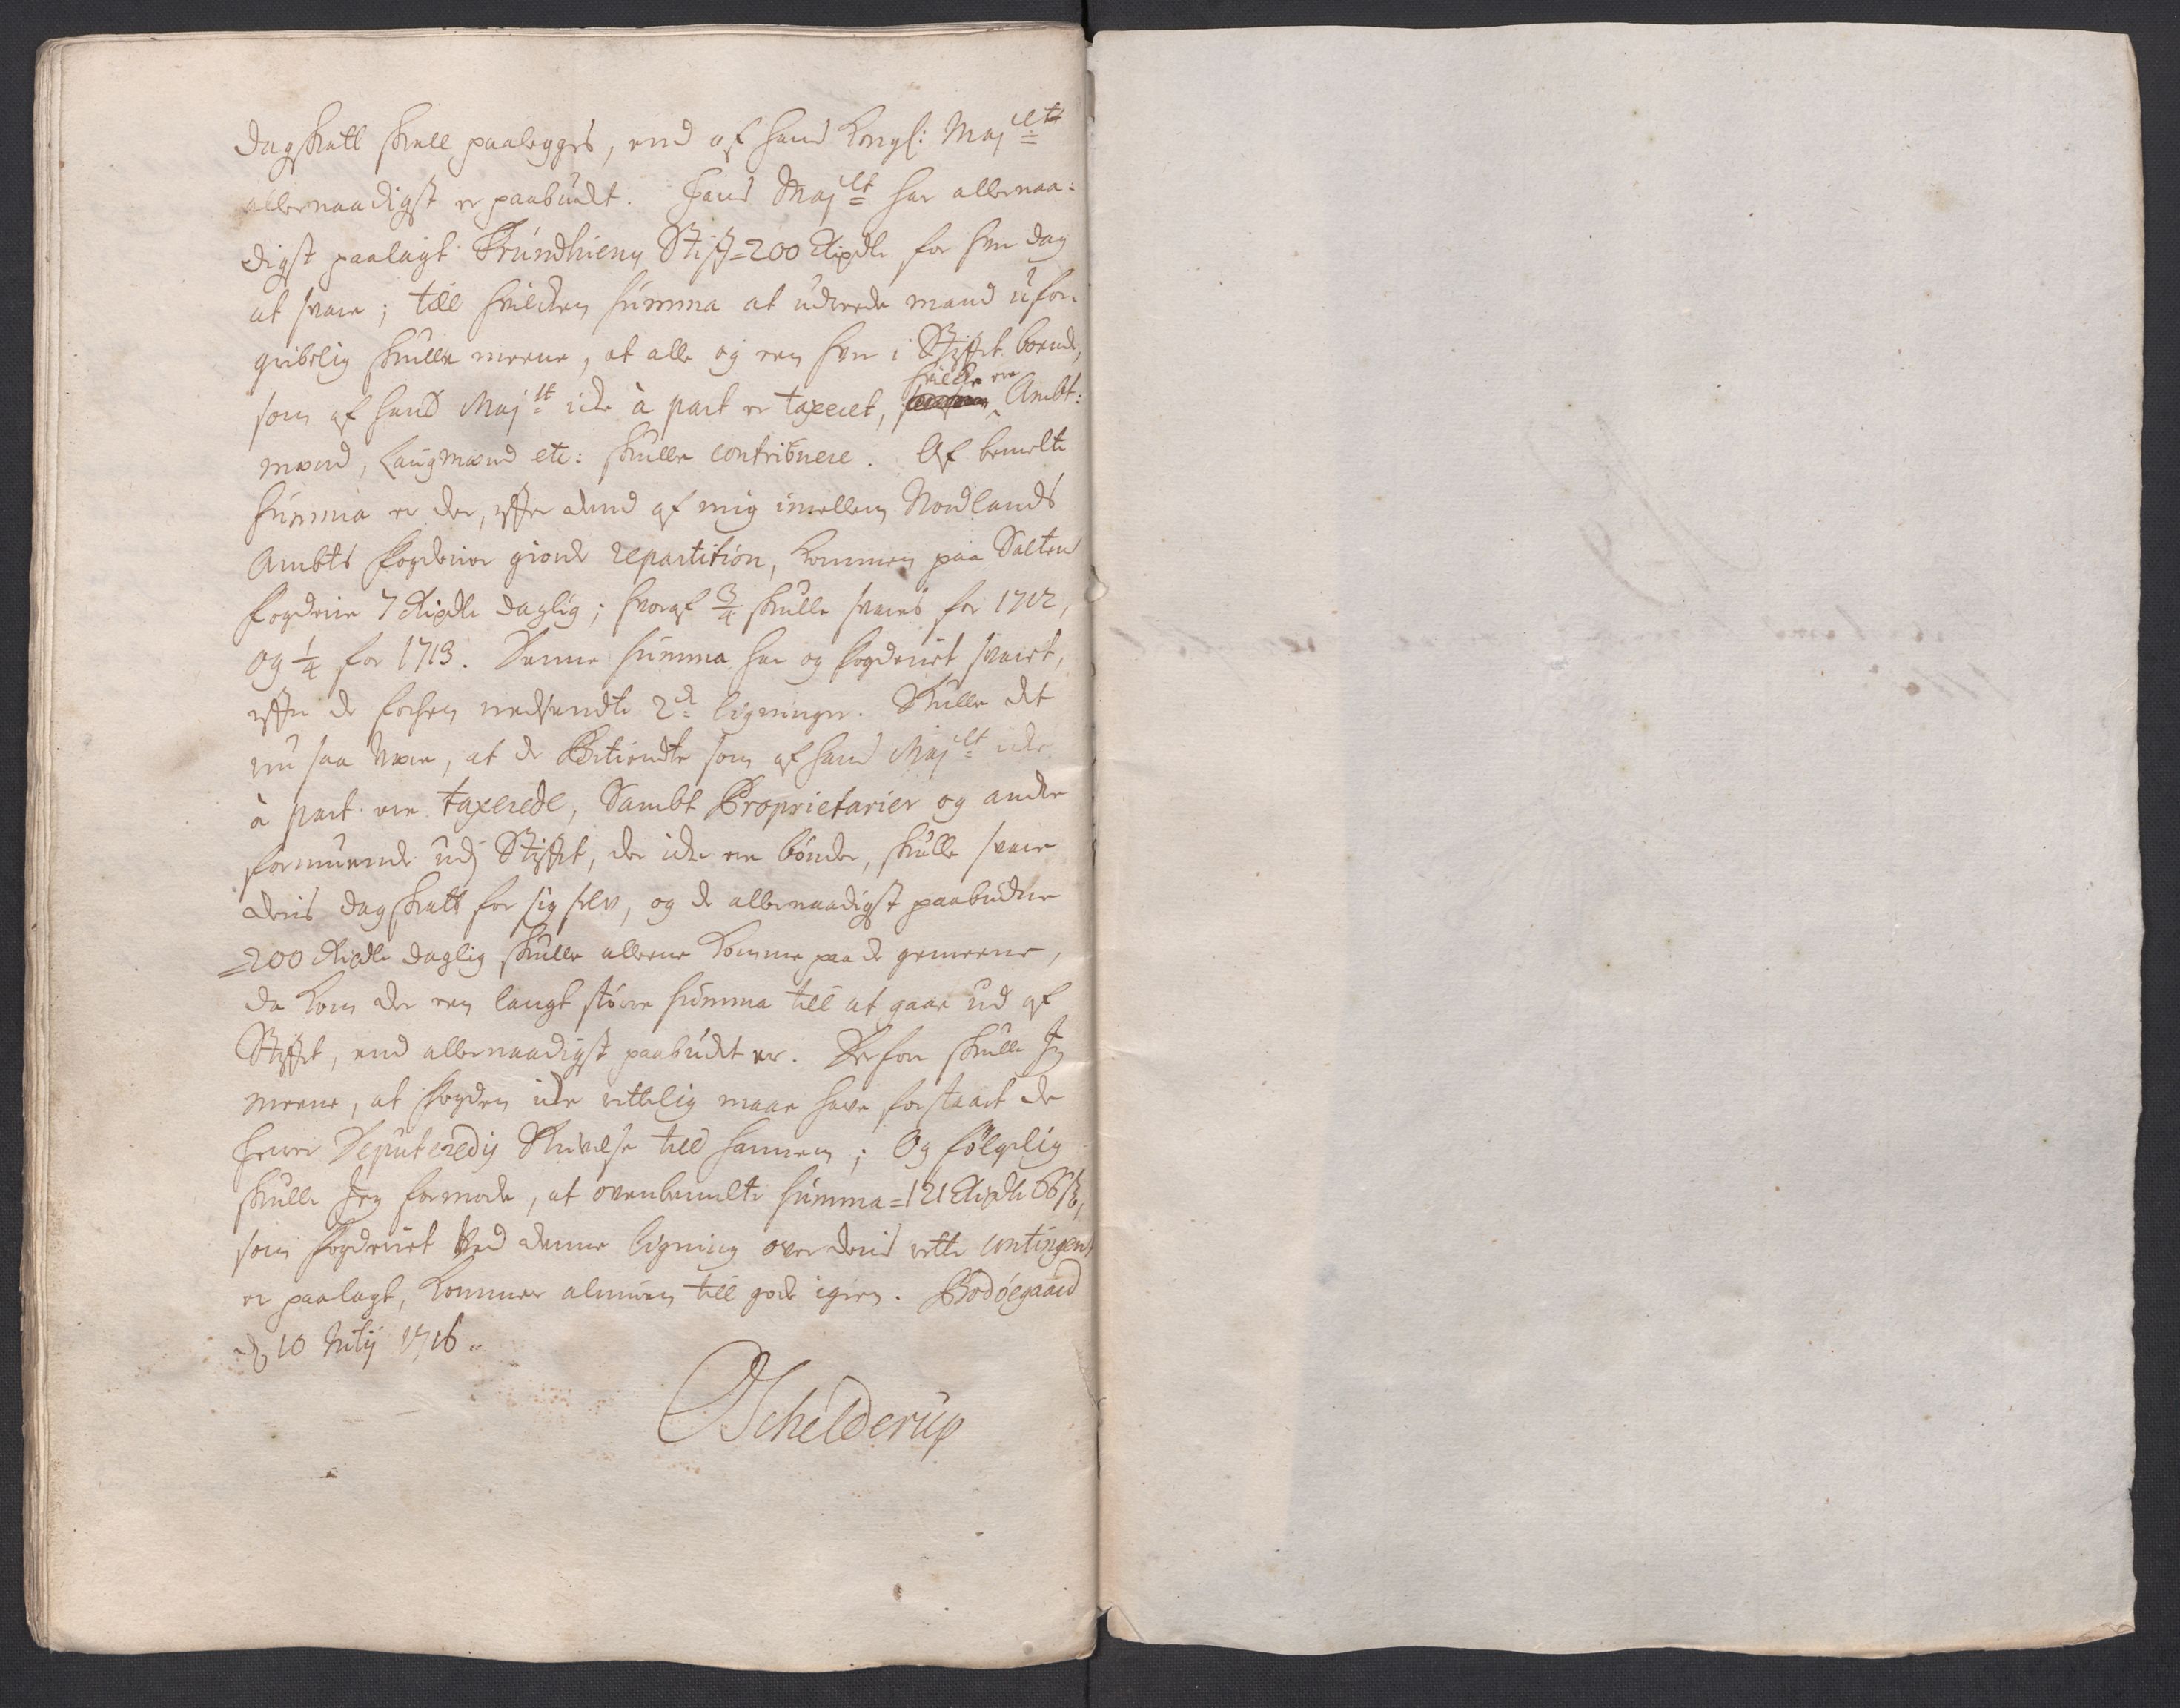 dagskatt skull paalegges, end af hans Kongl: Maj:ltt
allernaadigst er paabudt. Hans Maj:lt har allernaa-
digst paalagt Trundhiems Stift =200 Rixdlr for hver dag
at svare; till hvilcken summa at udreede mand ufor-
gribelig skulle meene, at alle og een hver i Stiftet boende,
som af hans Maj:lt icke à part er taxeret, hvilcke ere Ambt:
mænd, Laugmænd etc: skulle contribuere. Af bemelte
summa er der, efter dend af mig imellem Nordlands
Ambts fogderier giorde repartition, kommen paa Saltens
fogderie 7 Rixdlr daglig; hvoraf 3/4 skulle svares for 1712,
og 1/4 for 1713. Denne summa har og fogderiet svaret,
efter de forhen nedsendte 2de ligninger. Skulle det
nu saa være, at de Betiendte som af hans Maj:lt icke
à part ere taxerede, Sambt Proprietarier og andre
formuende udj Stiftet, der icke ere bønder, skulle svare
deris dagskatt for sig selv, og de allernaadigst paabudne
=200 Rixdlr daglig skulle alleene komme paa de gemeene,
da kom der een langt større summa till at gaae ud af
Stiftet, end allernaadigst paabudet er. Derfor skulle Jeg
meene, at fogden icke rettelig maae have forstaaet de
herrer Deputeredis Skrivelse till hannem; Og følgelig
skulle Jeg formode, at ovenbemelte summa =121 Rixdlr 66 s,
som fogderiet ved denne ligning over deris rette contingent
er paalagt, kommer almuen till gode igien. Bodøegaard
d 10 Martij 1716.
Schelderup